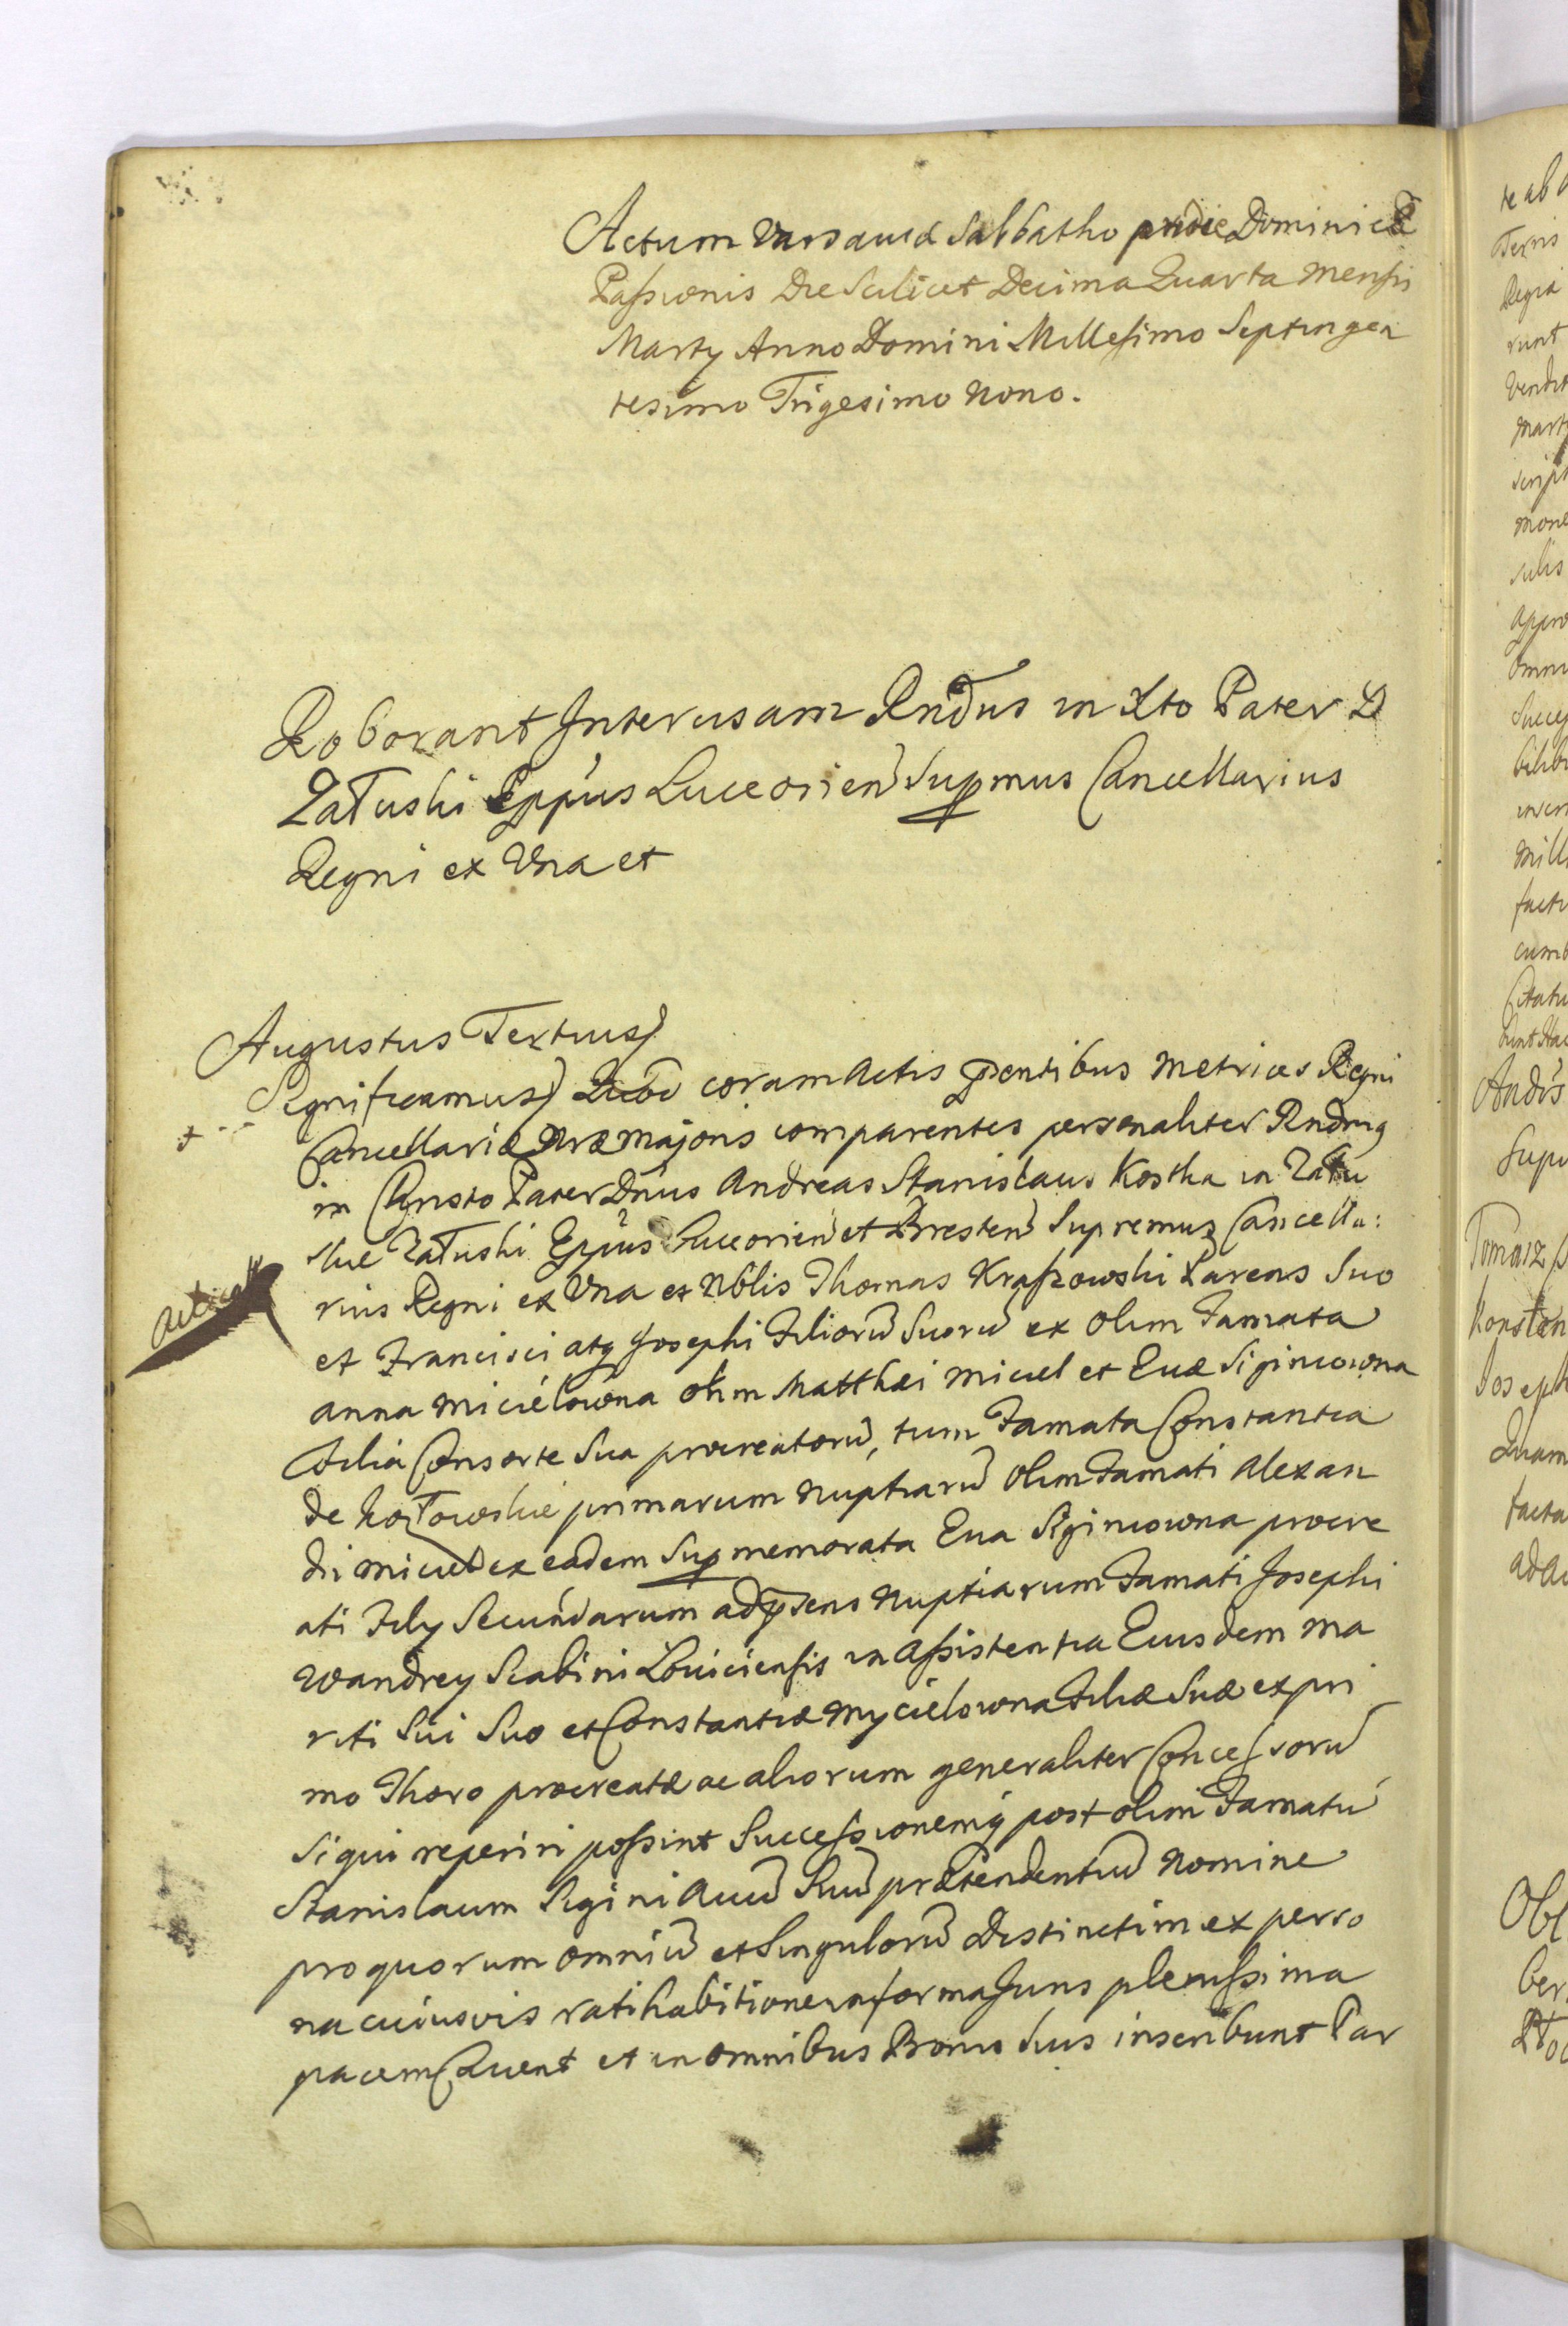 Actum Varsaviæ Sabbatho pridie Dominicæ
Passionis Die Scilicet Decima Quarta Mensis
Martÿ Anno Domini Millesimo Septingen
tesimo Trigesimo Nono.
Roborant Intercisam Rndus in Xto Pater D
Załuski Eppus Luceorien Supmus Cancellarius
Regni ex Una et
Augustus Tertius)
Significamus) Quod coram Actis pntibus Metrices Regni
Cancellariæ Nræ Majoris comparentes personaliter Rndus
in Christo Pater Dnus Andreas Stanislaus Kostka in Zału
skie Załuski Eppus Luceorien et Bresten Supremus Cancella:
Actico
rius Regni ex Una et Nblis Thomas Kraszowski Parens Suo
et Francisci atq Josephi Filiorū Suorū ex Olim Famata
Anna Micielowna olim Matthæi Miciel et Evæ Siginiowna
Filia Consorte Sua procreatorū, tum Famata Constantia
de Kozłowskie primarum Nuptiarū Olim Famati Alexan
dri Miciel ex eadem Supmemorata Eva Siginiowna procre
ati Filÿ Secundarum ad psens Nuptiarum Famati Josephi
Wandrey Scabini Loviciensis in Assistentia Eiusdem Ma
riti Sui Suo et Constantiæ Mycielowna Filiæ Suæ ex pri
mo Thoro procreatæ ac aliorum generaliter Concessorū
Siqui reperiri possint Successionemq post olim Famatū
Stanislaum Sigini Avū Suū prætendentiū Nomine
pro quorum omniū et Singulorū Distinctim ex perso
na cuiusvis ratihabitione in forma Juris plenissima
pacem Cavent et in omnibus Bonis Suis inscribunt Par